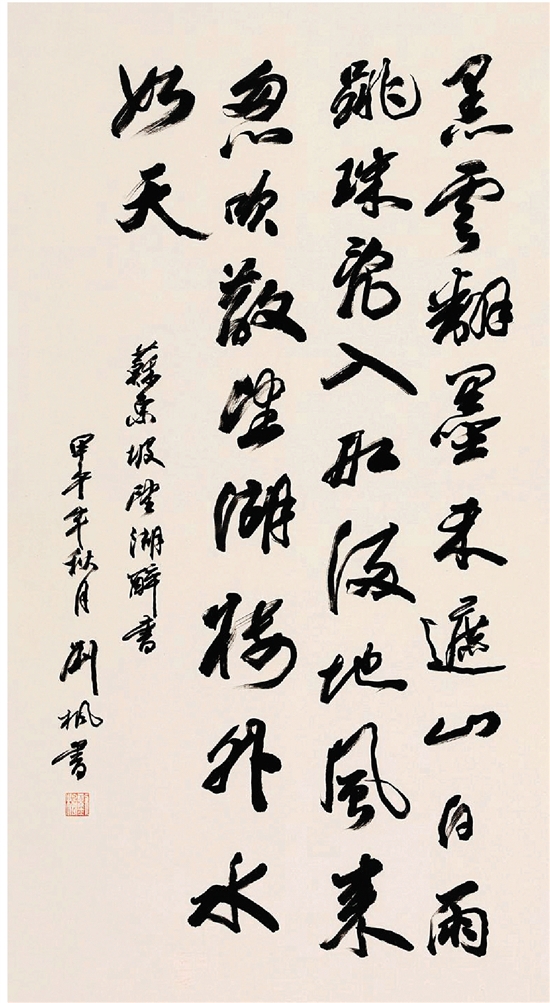 黑雲翻墨未遮山白雨
跳珠亂入船捲地風來
忽吹散望湖樓外水
如天
蘇東坡望湖醉書
甲午年秋月 劉楓書